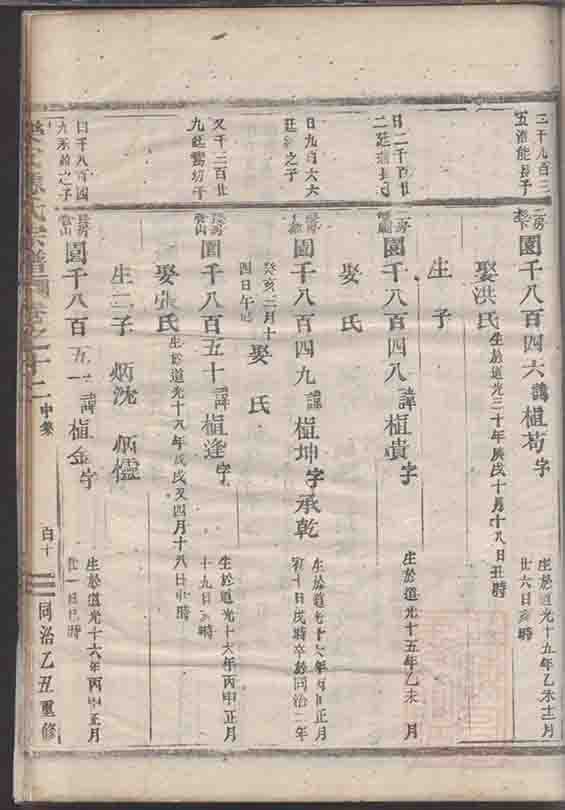 二千九百三
五濟能長子
二房
園千八百四六 諱植苟字
生於道光十五年乙未十二月
廿六日亥時
娶洪氏
生於道光三十年庚戌十月十八日丑時
生 子
日二千百廿
二廷
二房
園千八百四八 諱植貴字
生於道光十五年乙未 月
娶 氏
日九百六六
廷 之子
長房
園千八百四九 諱植坤字承乾
生於道光十六年丙申正月
初十日戌時卒於同治二年
癸亥二月十
四日午時
娶 氏
又千二百廿
九廷 幼子
長房
園千八百五十 諱植逢字
生於道光十六年丙申正月
十九日亥時
娶張氏
生於道光十八年戊戌又四月十八日申時
生二子 炳沈 炳楹
日千八百四
九 之子
長房
園千八百五一 諱植金字
生於道光十六年丙申正月
廿一日巳時
氏宗譜 卷之十二 中集
百十
同治乙丑重修